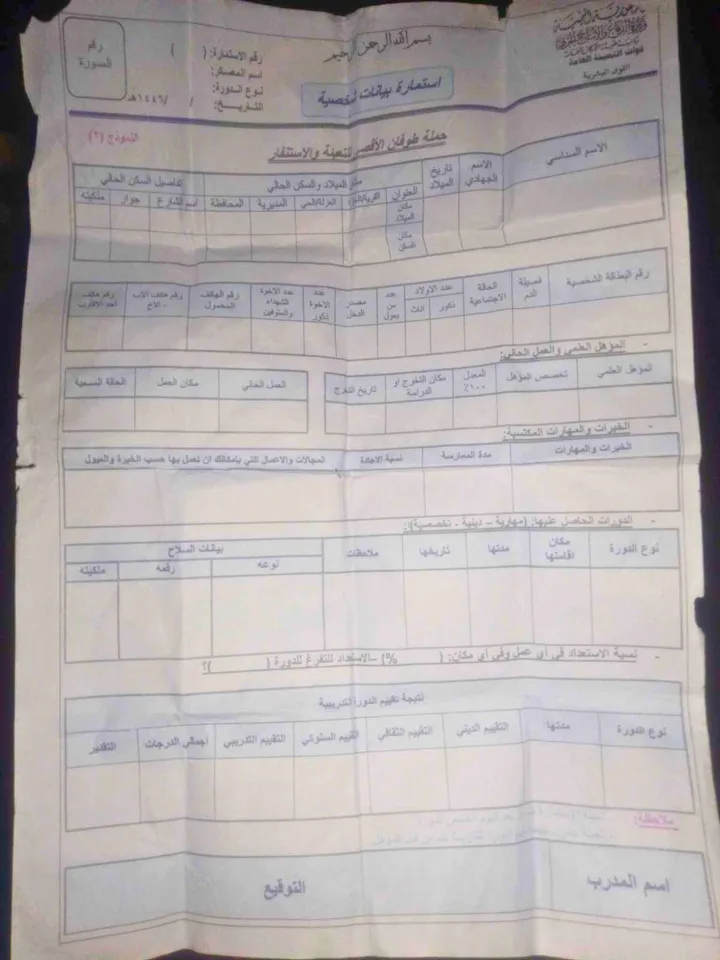 الجمهورية اليمنية
قوات التعبئة العامة
القوى البشرية
بسم الله الرحمن الرحيم
استمارة بيانات شخصية
رقم الاستمارة: ( )
اسم المعسكر:
نوع الدورة:
التاريخ: / /١٤٤٦هـ
رقم الصورة
حملة طوفان الأقصى للتعبئة والاستنفار
النموذج (٢)
الاسم السداسي
الاسم الجهادي
تاريخ الميلاد
مكان الميلاد والسكن الحالي
تفاصيل السكن الحالي
العنوان
القرية/الحارة
العزلة/الحي
المديرية
المحافظة
اسم الشارع
جوار
ملكيته
مكان الميلاد
مكان السكن
رقم البطاقة الشخصية
فصيلة الدم
الحالة الاجتماعية
عدد الاولاد
ذكور
اناث
عدد من يعول
مصدر الدخل
عدد الاخوة ذكور
عدد الاخوة الشهداء والمتوفين
رقم الهاتف المحمول
رقم هاتف الأب - الاخ
رقم هاتف احد الأقارب
- المؤهل العلمي والعمل الحالي:
المؤهل العلمي
تخصص المؤهل
المعدل ١٠٠٪
مكان التخرج /او الدراسة
تاريخ التخرج
العمل الحالي
مكان العمل
الحالة الصحية
- الخبرات والمهارات المكتسبة:
الخبرات والمهارات
مدة الممارسة
نسبة الاجادة
المجالات والاعمال التي بإمكانك ان تعمل بها حسب الخبرة والميول
- الدورات الحاصل عليها: (مهارية – دينية - تخصصية):
نوع الدورة
مكان اقامتها
مدتها
تاريخها
ملاحظات
بيانات السلاح
نوعه
رقمه
ملكيته
- نسبة الاستعداد في أي عمل وفي أي مكان: ( %) –الاستعداد للتفرغ للدورة ( )؟
نتيجة تقييم الدورة التدريبية
نوع الدورة
مدتها
التقييم الديني
التقييم الثقافي
التقييم السلوكي
التقييم التدريبي
اجمالي الدرجات
التقدير
ملاحظة:
اسم المدرب
التوقيع